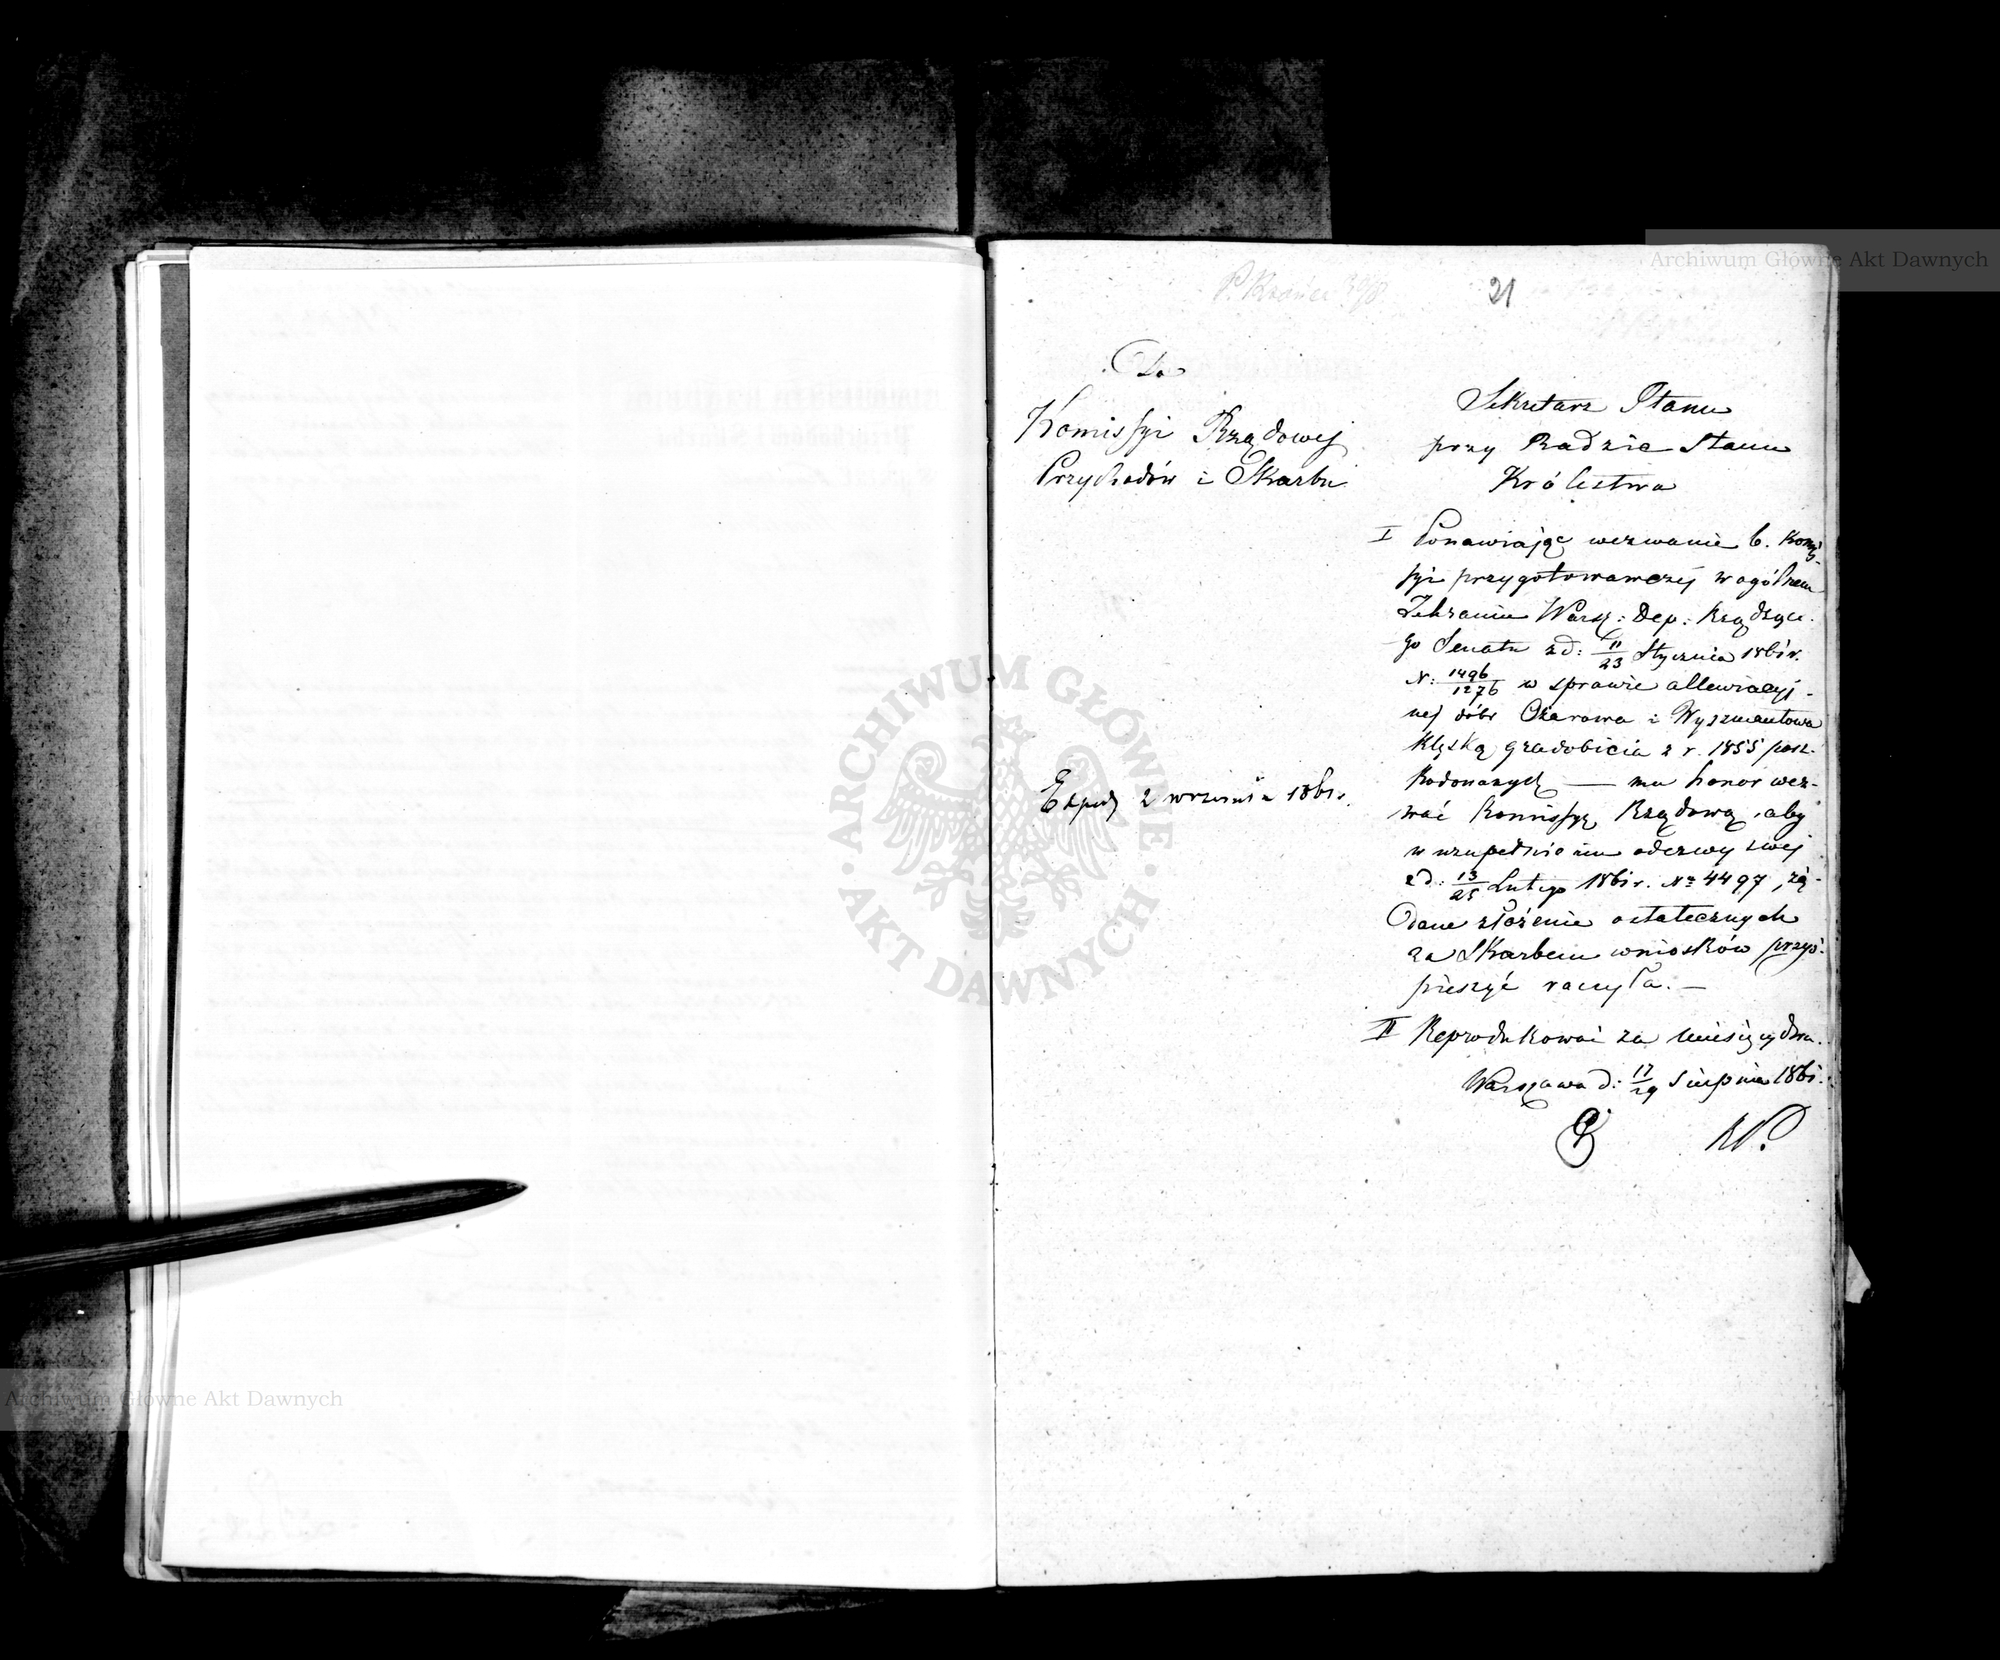 21
Do
Komissyi Rządowej
Przychodów i Skarbu
Exped. 2 września 1861 r.
Sekretarz Stanu
przy Radzie Stanu
Królestwa
I Ponawiając wezwanie b. Komis-
syi przygotowawczej w ogólnem
Zebraniu Warsz: Dep: Rządzące-
go Senatu z d: 11/23 Stycznia 1861 r.
N: 1496/1276 w sprawie allewiacyj-
nej dóbr Ożarowa i Wyszmontowa
klęską gradobicia z r. 1855 posz-
kodowanych — ma honor wez-
wać Kommissyę Rządową, aby
w uzupełnieniu odezwy swej
z d: 13/25 Lutego 1861 r. No 4497, żą-
dane złożenie ostatecznych
za Skarbem wniosków przyś-
pieszyć raczyła. —
II Reprodukować za miesięcy dwa.
Warszawa d: 17/29 Sierpnia 1861.
Archiwum Główne Akt Dawnych
ARCHIWUM GŁÓWNE · AKT DAWNYCH ·
Archiwum Główne Akt Dawnych